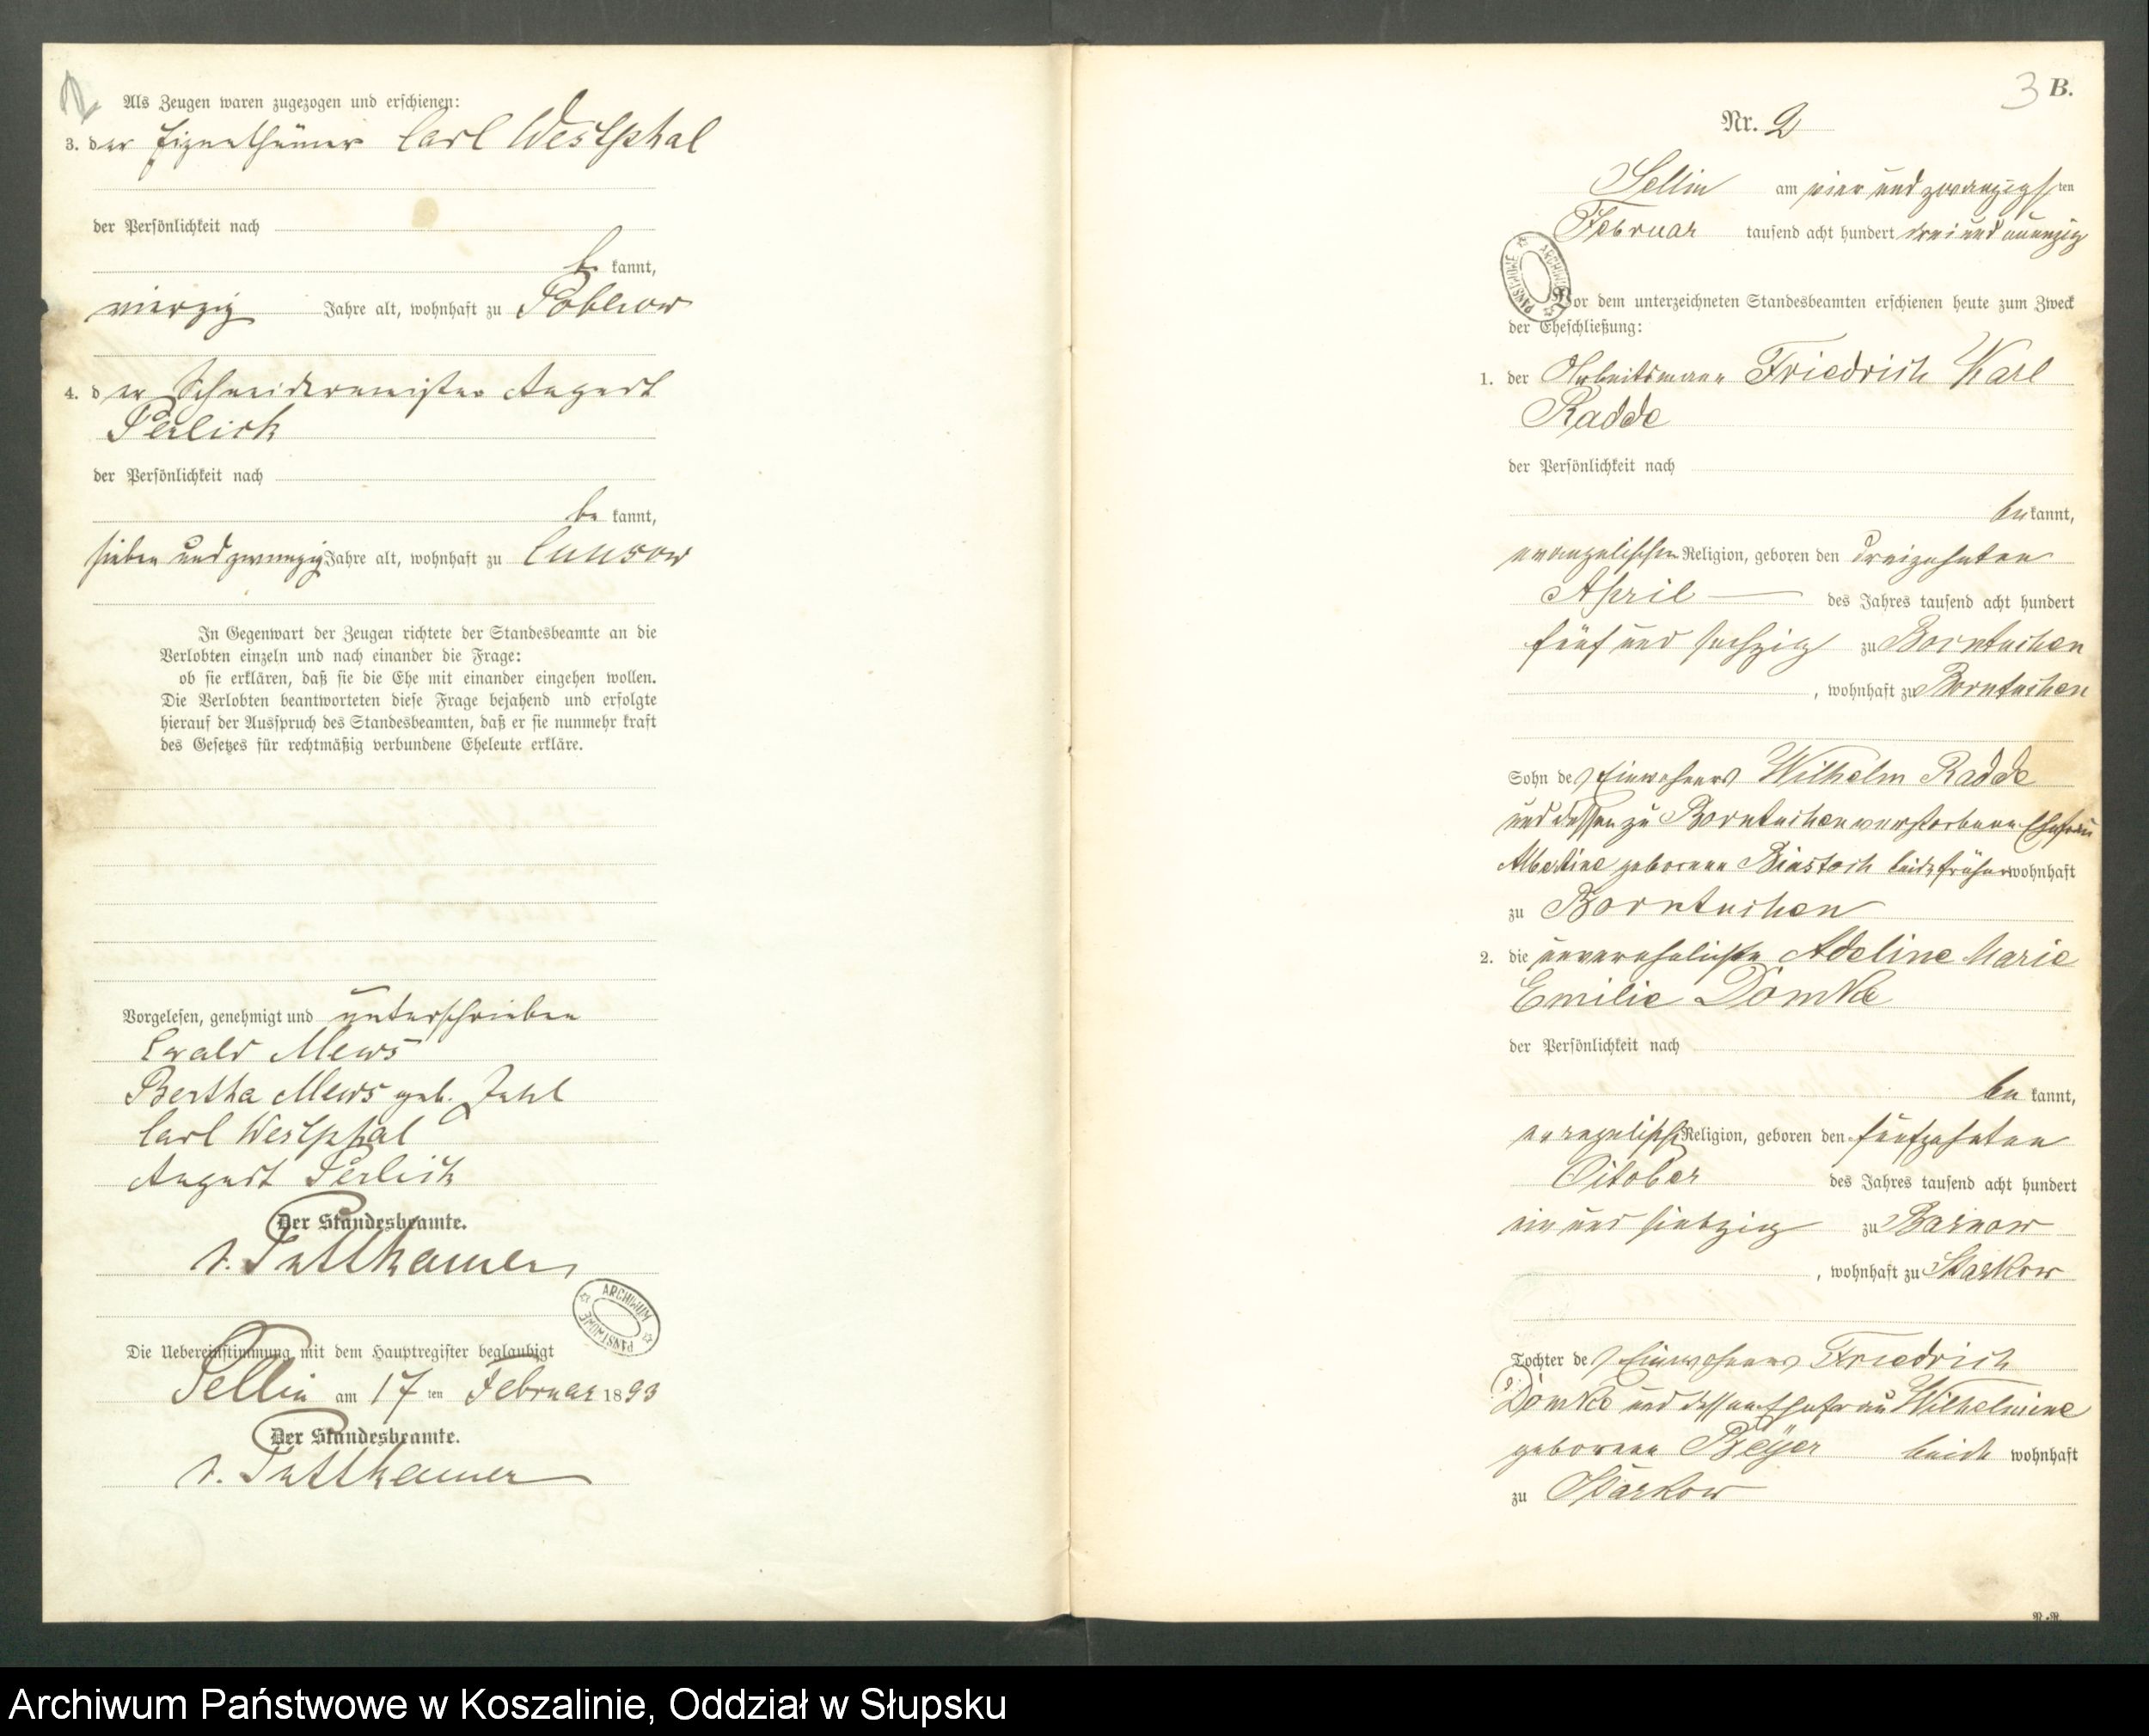 Als Zeugen waren zugezogen und erschienen:
3. der Eigenthümer Carl Westphal
der Persönlichkeit nach
be kannt,
vierzig Jahre alt, wohnhaft zu Poblow
4. der Schneidermeister August
Perlick
der Persönlichkeit nach
be kannt,
sieben und zwanzig Jahre alt, wohnhaft zu
In Gegenwart der Zeugen richtete der Standesbeamte an die
Verlobten einzeln und nach einander die Frage:
ob sie erklären, daß sie die Ehe mit einander eingehen wollen.
Die Verlobten beantworteten diese Frage bejahend und erfolgte
hierauf der Ausspruch des Standesbeamten, daß er sie nunmehr kraft
des Gesetzes für rechtmäßig verbundene Eheleute erkläre.
Vorgelesen, genehmigt und unterschrieben
Ewald Mews
Bertha Mews geb.
Carl Westphal
August Perlick
Der Standesbeamte.
v. Puttkamer
Die Uebereinstimmung mit dem Hauptregister beglaubigt
Sellin am 17 ten Februar 1893
Der Standesbeamte.
v. Puttkamer
ARCHIWUM PAŃSTWOWE
3 B.
Nr. 2
Sellin am vier und zwanzigsten
Februar tausend acht hundert drei und neunzig
ARCHIWUM PAŃSTWOWE
Vor dem unterzeichneten Standesbeamten erschienen heute zum Zweck
der Eheschließung:
1. der Arbeitsmann Friedrich Karl
Radde
der Persönlichkeit nach
be kannt,
evangelischer Religion, geboren den dreizehnten
April des Jahres tausend acht hundert
fünf und sechzig zu Borntuchen
, wohnhaft zu Borntuchen
Sohn des Einwohners Wilhelm Radde
und dessen zu Borntuchen verstorbene Ehefrau
Albertine geborene Biastoch beide früher wohnhaft
zu Borntuchen
2. die unverehelichte Adeline Marie
Emilie Dömke
der Persönlichkeit nach
be kannt,
evangelischer Religion, geboren den fünfzehnten
October des Jahres tausend acht hundert
ein und siebzig zu Barnow
, wohnhaft zu Starkow
Tochter des Einwohners Friedrich
Dömke und dessen Ehefrau Wilhelmine
geborene Beÿer beide wohnhaft
zu Starkow
Archiwum Państwowe w Koszalinie, Oddział w Słupsku